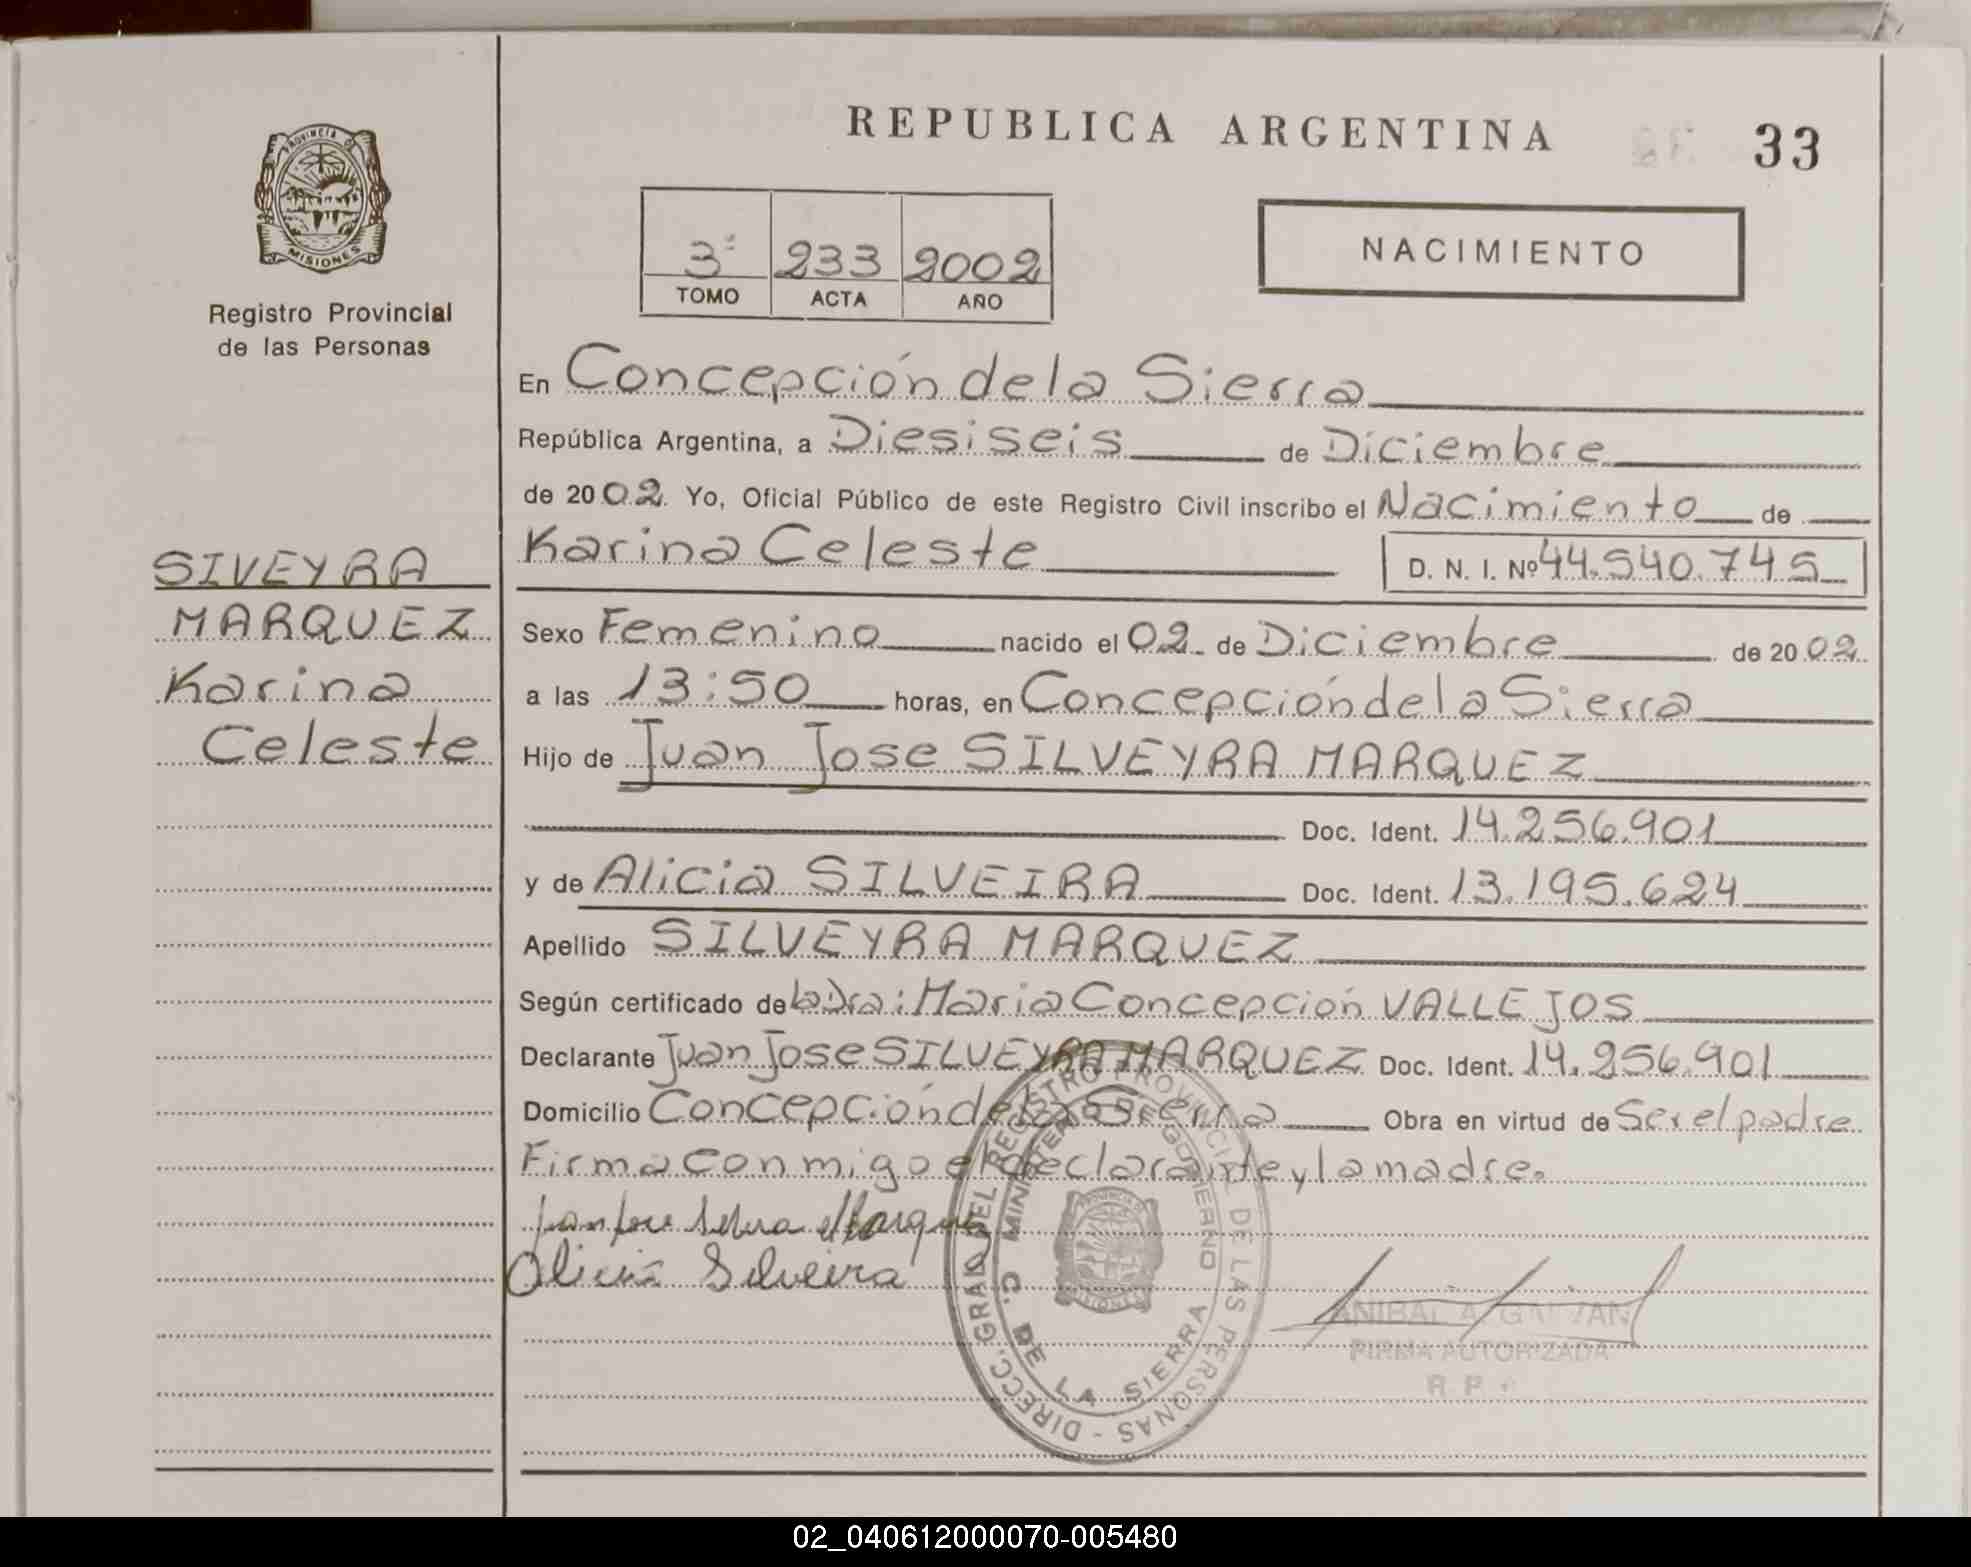 REPUBLICA ARGENTINA 33
PROVINCIA DE
MISIONES
Registro Provincial
de las Personas
3º 233 2002
TOMO ACTA AÑO
NACIMIENTO
En Concepción de la Sierra
República Argentina, a Diesiseis de Diciembre
de 2002. Yo, Oficial Público de este Registro Civil inscribo el Nacimiento de
Karina Celeste D. N. I. Nº 44.540.745
SIVEYRA
MARQUEZ
Karina
Celeste
Sexo Femenino nacido el 02 de Diciembre de 2002
a las 13:50 horas, en Concepción de la Sierra
Hijo de Juan Jose SILVEYRA MARQUEZ
Doc. Ident. 14.256.901
y de Alicia SILVEIRA Doc. Ident. 13.195.624
Apellido SILVEYRA MARQUEZ
Según certificado de la Dra: Maria Concepción VALLEJOS
Declarante Juan Jose SILVEYRA MARQUEZ Doc. Ident. 14.256.901
Domicilio Concepción de la Sierra Obra en virtud de Ser el padre
Firma conmigo el declarante y la madre.
Alicia Silveira
DIRECC. GRAL. DEL REGISTRO PROVINCIAL DE LAS PERSONAS -
MINISTERIO DE GOBIERNO
C. DE LA SIERRA
MISIONES
ANIBAL A. GALVAN
FIRMA AUTORIZADA
R. P.
02_040612000070-005480